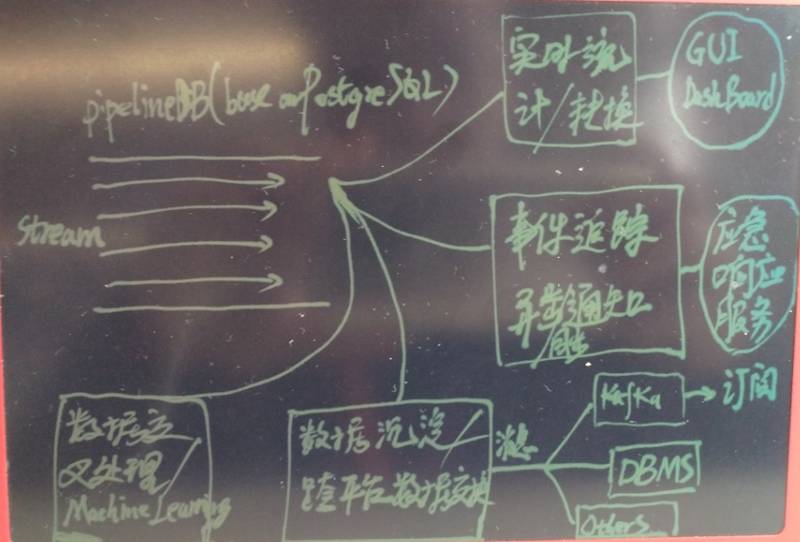 pipelineDB(base on PostgreSQL)
stream
实时统
计/转换
GUI
DashBoard
事件追踪
异步通知
应急
响应
服务
数据交
叉处理/
Machine Learning
数据沉淀/
跨平台数据交换
消息
Kafka
订阅
DBMS
Others